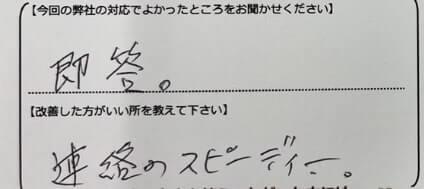 【今回の弊社の対応でよかったところをお聞かせください】
即答。
【改善した方がいい所を教えて下さい】
連絡のスピーディー。